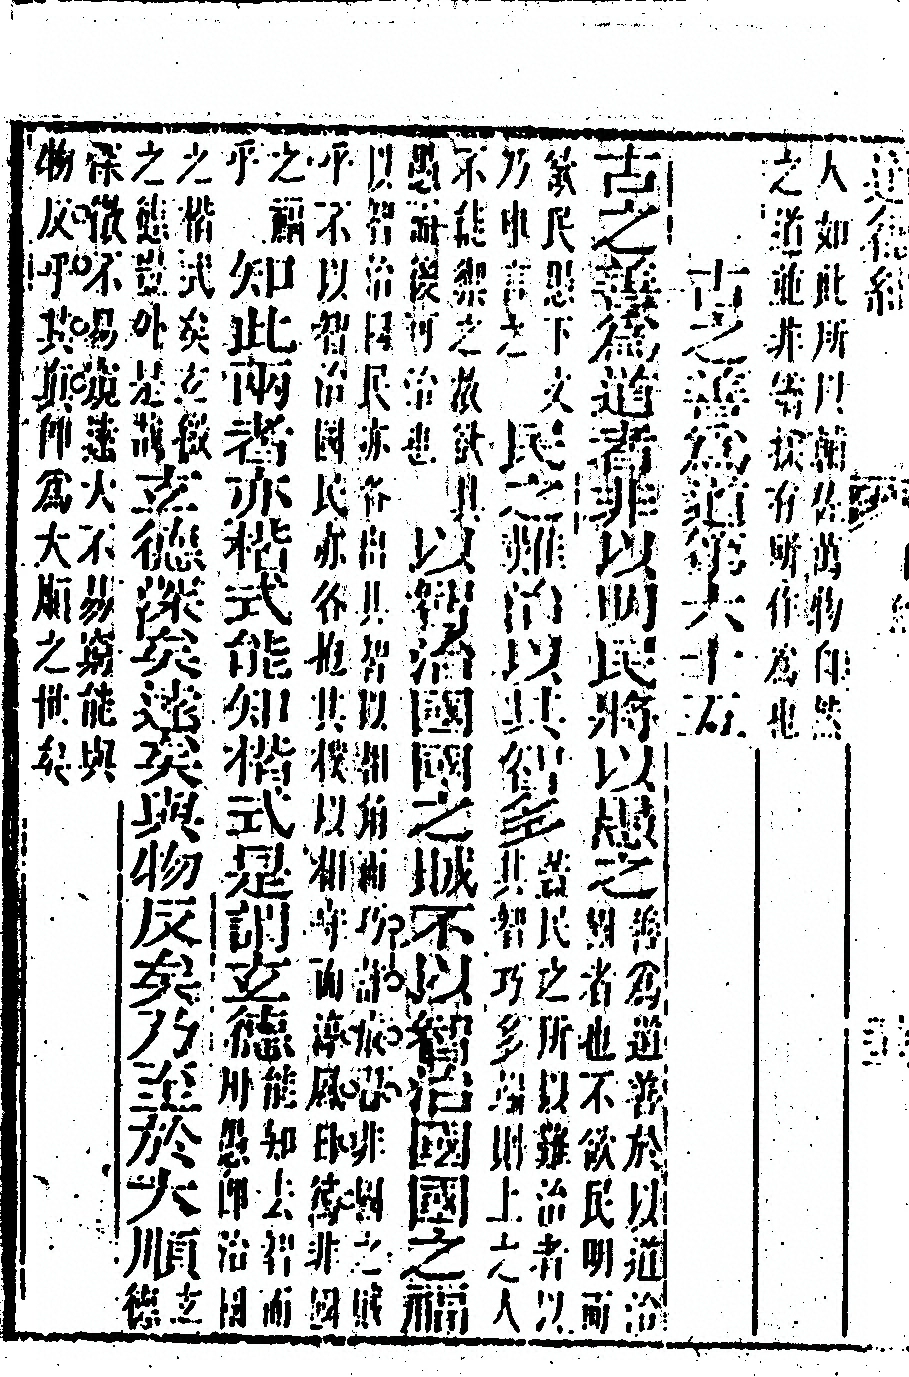 道德經
人如此所以輔佐萬物自然
之道並非等揬有所作爲也
古之善爲道第六十五
古之善爲道者非以明民將以愚之
善爲道善於以道治
國者也不欲民明而
欲民愚下文
乃申言之
民之難治以其智多
蓋民之所以難治者以
其智巧多端則上之人
不能禦之故欲其
愚而後可治也
以智治國國之賊不以智治國國之福
以智治國民亦各出其智以相角而巧詐滋非國之賊
乎不以智治國民亦各抱其樸以相守而淳風非國
之福
乎
知此兩者亦楷式能知楷式是謂玄德
能知去智而
用愚卽治國
之楷式矣玄微
之德豈外是哉
玄德深矣遠矣與物反矣乃至於大順
玄
德
深微不易窺遠大不易窮能與
物反乎其順卽爲大順之世矣